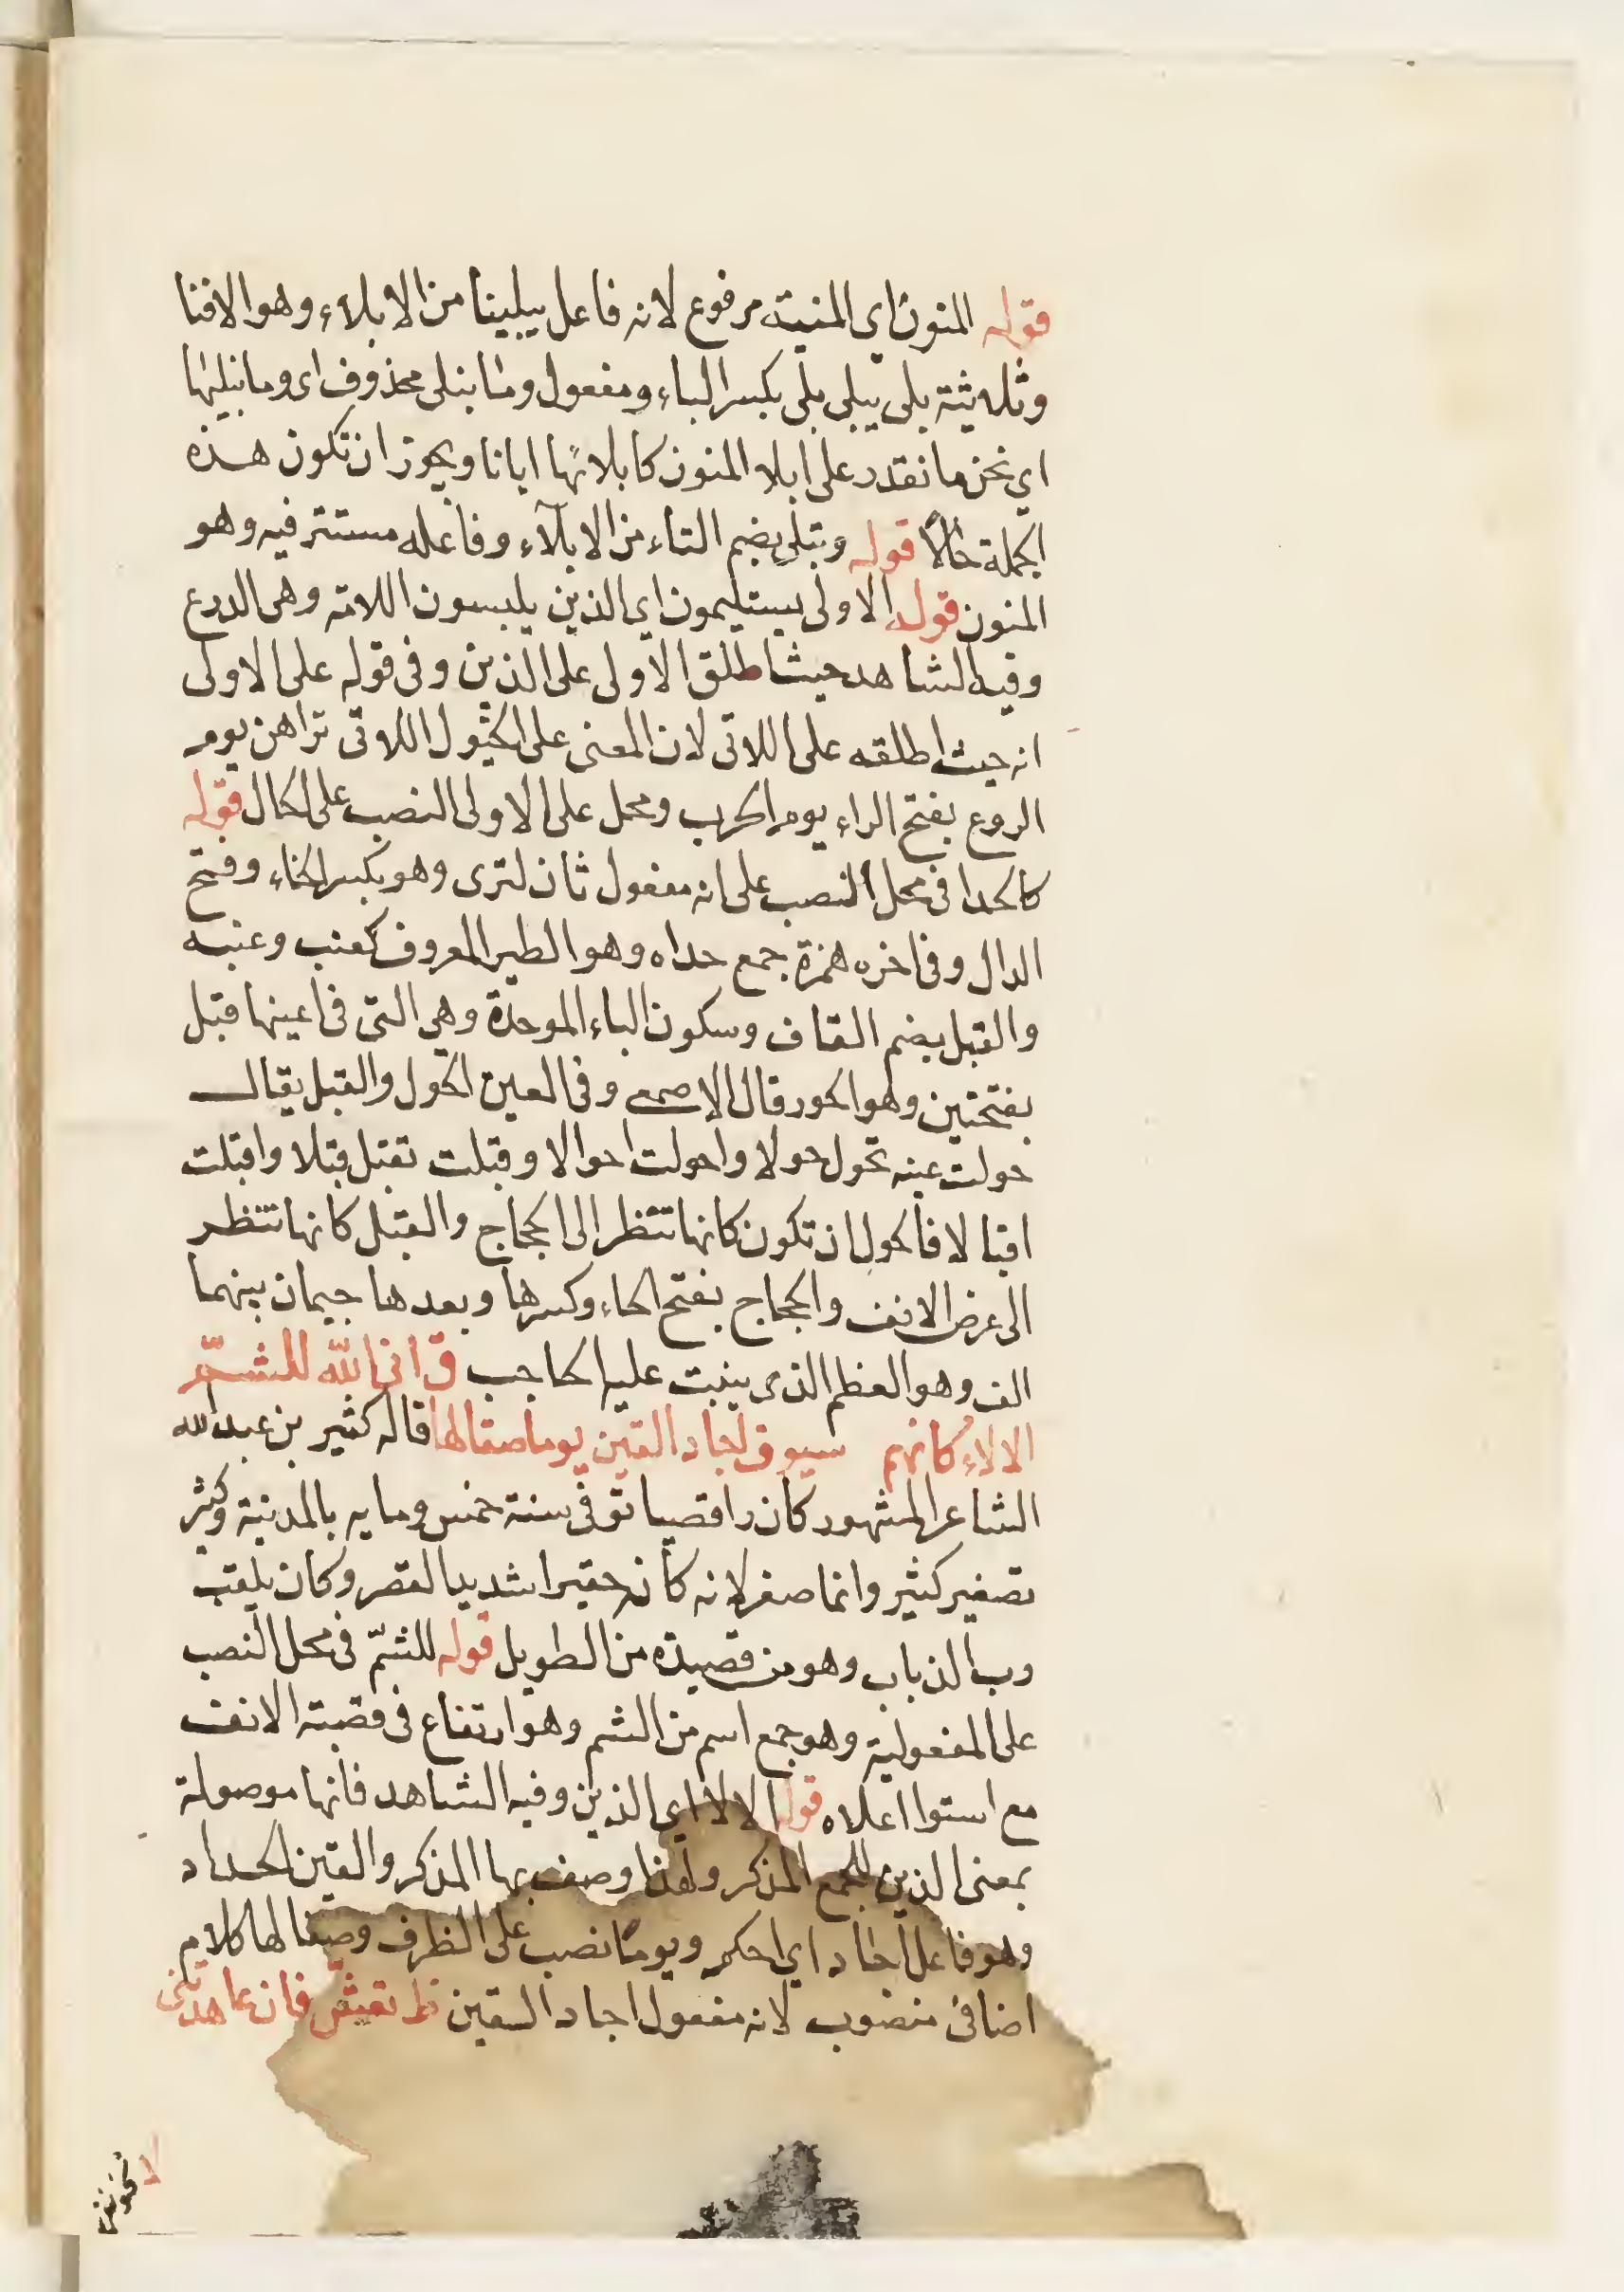 قوله المنون اي المنية مرفوع لانه فاعل يبلينا من الابلاء وهو الافنا
وثلاثيته بلى يبلى بلى بكسر الباء ومفعول وما نبلى محذوف اى وما نبليها
اي نحن ما نقدر على ابلا المنون كابلائها ايانا ويجوز ان تكون هذه
الجملة حالا قوله وتبلى بضم التاء من الابلاء وفاعله مستتر فيه وهو
المنون قوله الاولى يستليمون اي الذين يلبسون اللامة وهى الدرع
وفيه الشاهد حيث اطلق الاولى على الذين وفى قوله على الاولى
انه حيث اطلقه على اللاتى لان المعنى على الخيول اللاتى تراهن يوم
الروع بفتح الراء يوم الحرب ومحل على الاولى النصب على الحال قوله
كالحدا فى محل النصب على انه مفعول ثان لترى وهو بكسر الحاء وفتح
الدال وفى اخره همزة جمع حداه وهو الطير المعروف كعنب وعنبه
والقبل بضم القاف وسكون الباء الموحدة وهي التى فى اعينها قبل
بفتحتين وهو الحور قال الاصمعى وفى العين الحول والقبل يقال
حولت عينه تحول حولا واحولت احوالا وقبلت تقبل قبلا واقبلت
اقبالا فالحول ان تكون كانها تنظر الى الحجاج والقبل كانها تنظر
الى عرض الانف والحجاج بفتح الحاء وكسرها وبعدها جيمان بينهما
الف وهو العظم الذى ينبت عليه الحاجب ق ابى الله للشم
الالاء كانهم سيوف اجاد القين يوما صقالها قاله كثير بن عبد الله
الشاعر المشهور كان رافضيا توفى سنة خمس ومايه بالمدينة وكثر
تصغير كثير وانما صغر لانه كان حقيرا شديد القصر وكان يلقب
وب الذباب وهو من قصيدة من الطويل قوله للشم فى محل النصب
على المفعولية وهو جمع اسم من الشم وهو ارتفاع فى قصبة الانف
مع استوا اعلاه قوله الالا اي الذين وفيه الشاهد فانها موصولة
بمعنى الذين للجمع المذكر ولهذا وصف بها المذكر والقين الحداد
وهو فاعل اجاد اي احكم ويوما نصب على الظرف وصقالها كلام
اضافى منصوب لانه مفعول اجاد القين ظ تعش فان عاهدتنى
لا تخونني